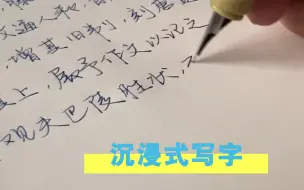 通人和,百
增其旧制,刻唐
上,属予作文以记之
观夫巴陵胜状,
沉浸式写字